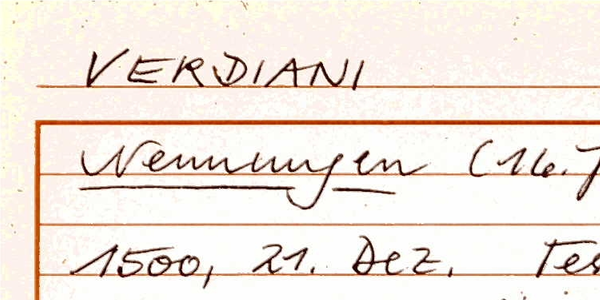 VERDIANI
Nennungen (16.J
1500, 21. Dez. Tes